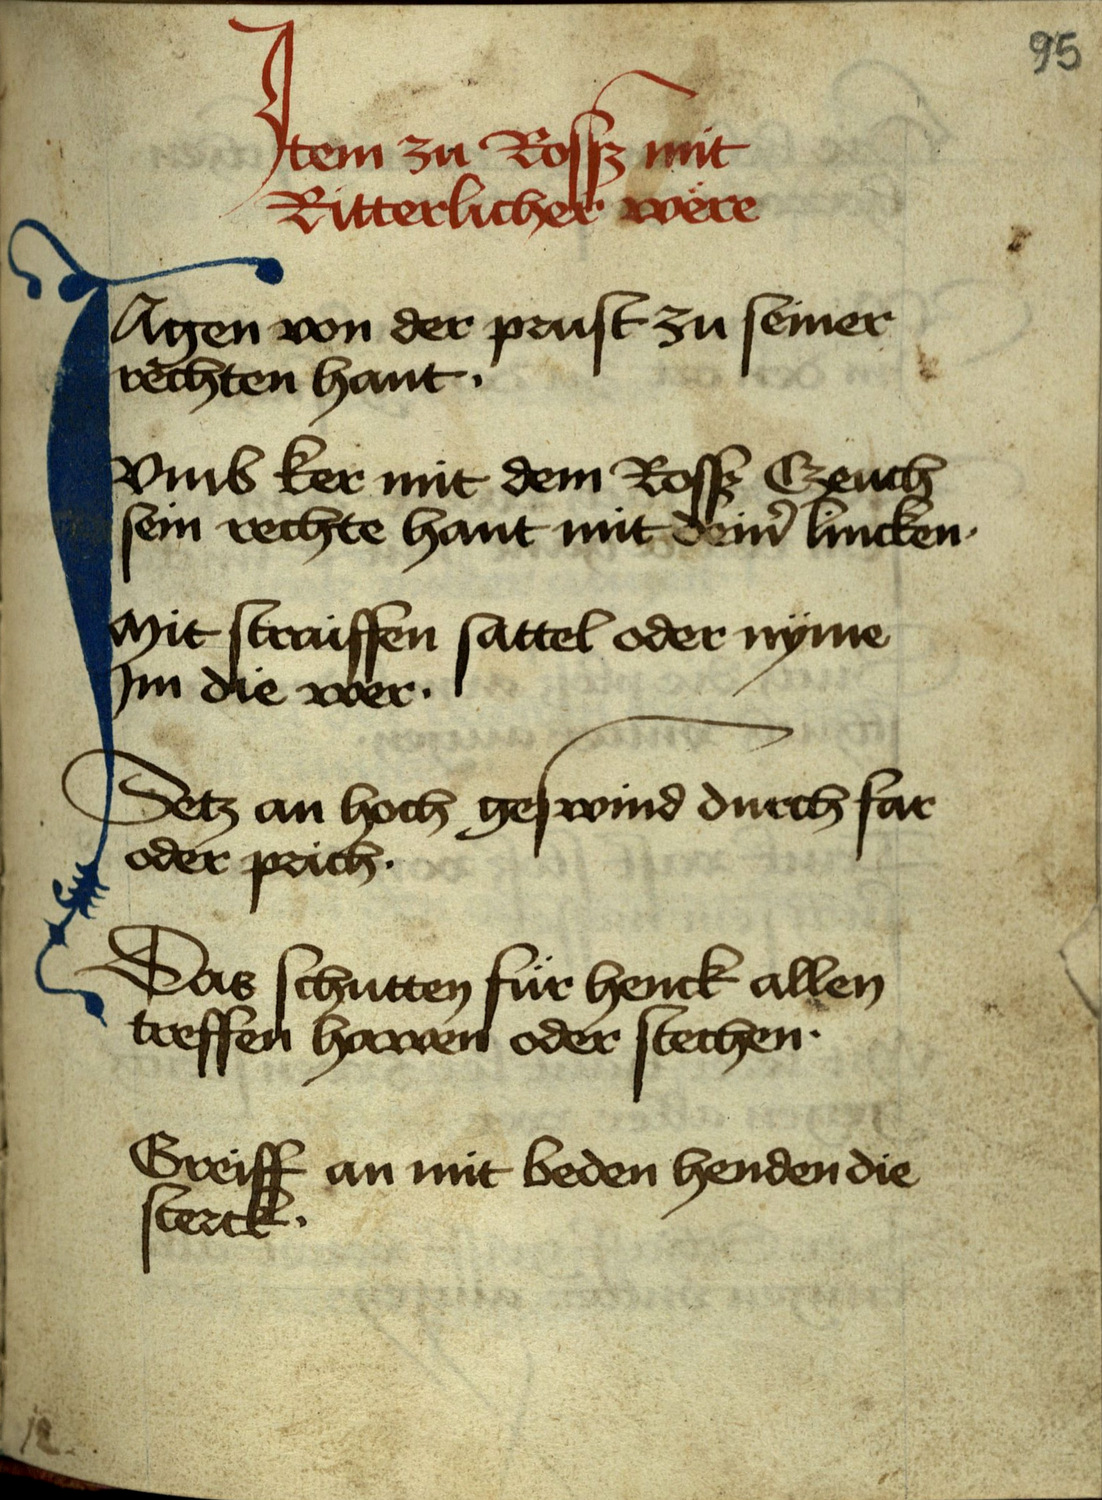 95
Item zu Rossz mit
Ritterlicher wëre
IAgen von der prust zu seiner
rechten hant.
Vmb ker mit dem Rossz Czeuch
sein rechte hant mit dein̄ lincken.
Mit straiffen sattel oder nÿme
Im die wer.
Setz an hoch geswind durch far
oder prich.
Das schutten für henck allen
treffen hawen oder stechen.
Greiff an mit beden henden die
sterck.